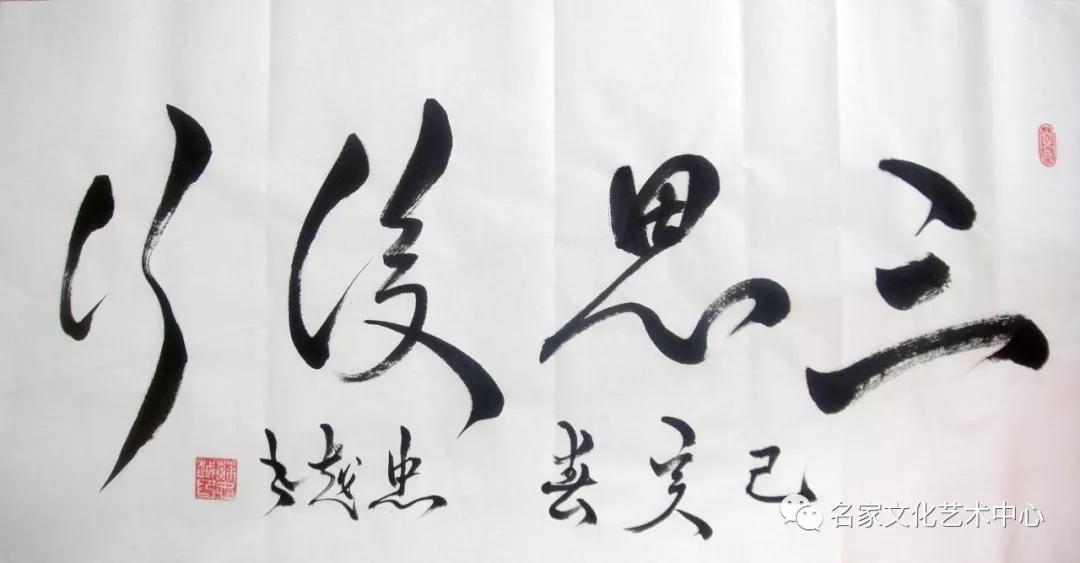 三思後行
己亥春
忠越书
名家文化艺术中心